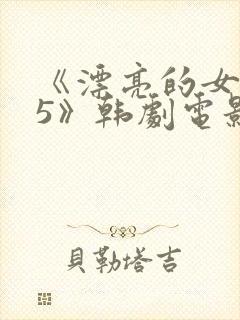 《漂亮的女
5》韩劇電影
貝勒塔吉